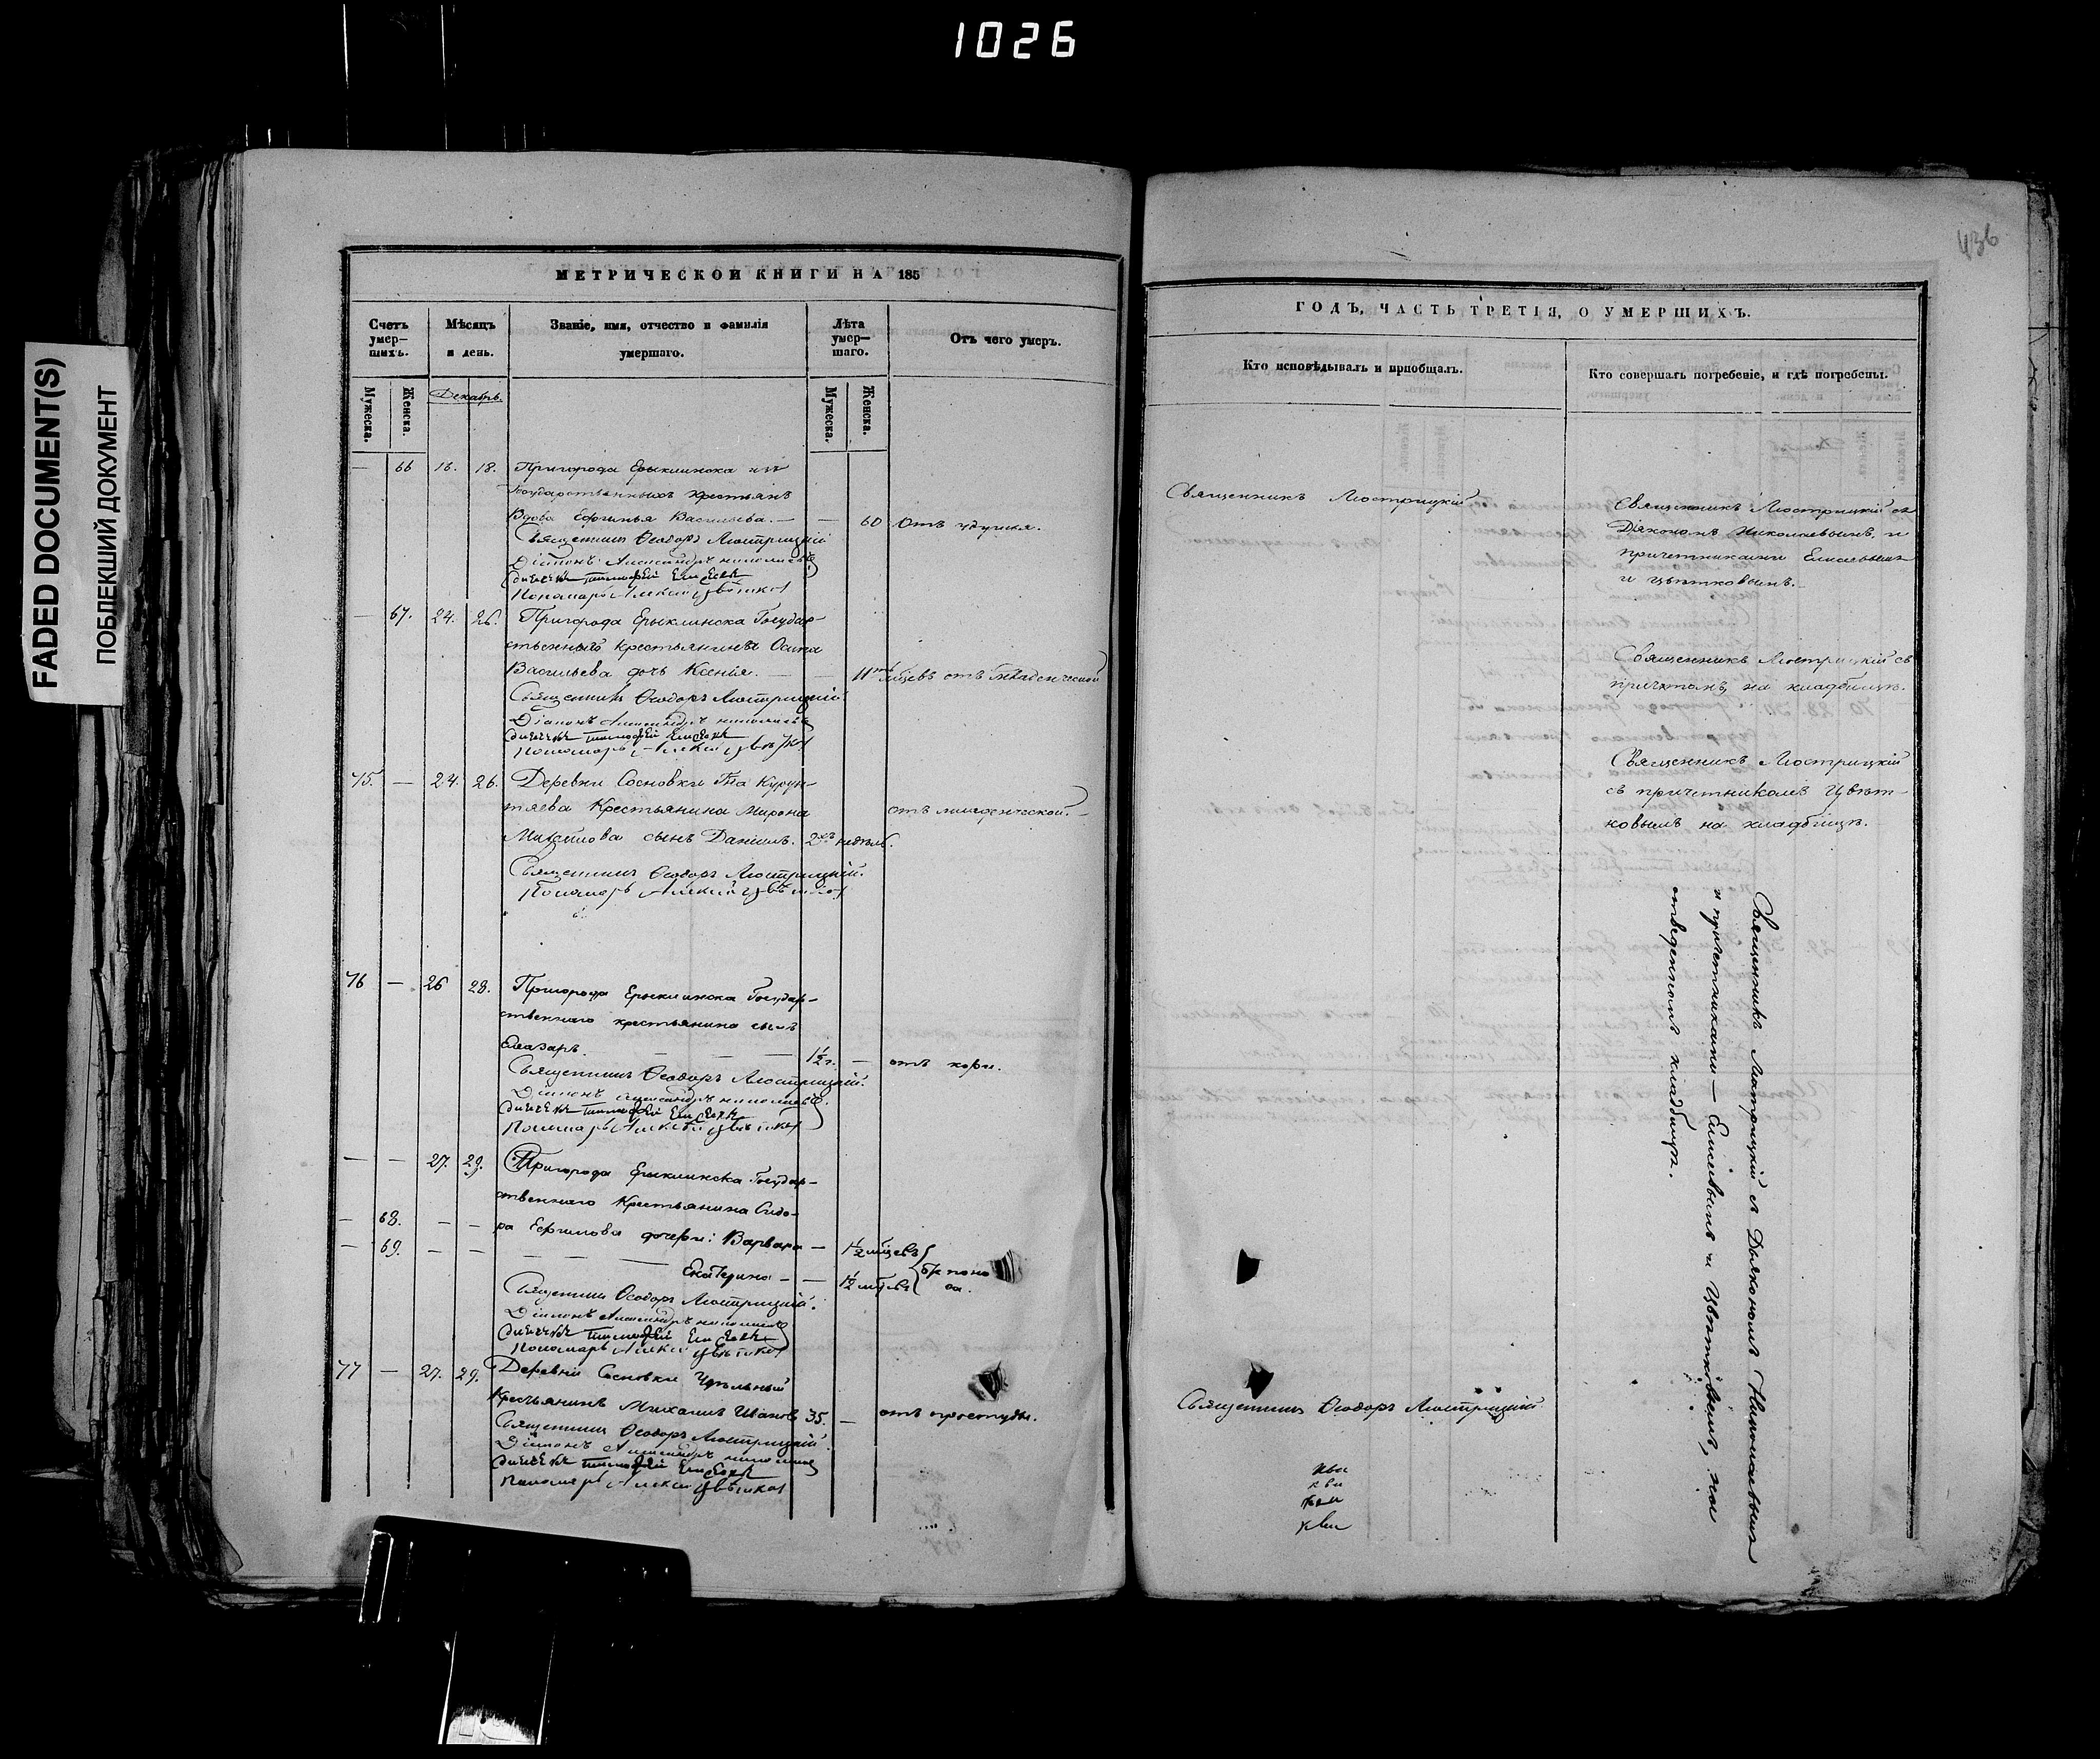 1026
FADED DOCUMENT(S)
ПОБЛЕКШИЙ ДОКУМЕНТ
МЕТРИЧЕСКОЙ КНИГИ НА 185
Счетъ умер-шихъ.
Мѣсяцъ и день.
Званіе, имя, отчество и фамилія умершаго.
Лѣта умер-шаго.
Отъ чего умеръ.
Мужеска.
Женска.
Декабрь.
Мужеска.
Женска.
— 66 16. 18. Пригорода Ерыклинска изъ
Государственныхъ крестьянъ
Вдова Ефимья Васильева. — — 60 Отъ удушья.
Священникъ Ѳеодоръ Люстрицкій
Діаконъ Александръ Николаевъ
Дьячекъ Тимофей Елисеевъ
Пономарь Алексій Цвѣтковъ
— 67. 24. 26. Пригорода Ерыклинска Государ-
ственнаго крестьянина Осипа
Васильева дочь Ксенія. — — 11ть мѣсяцевъ отъ младенческой
Священникъ Ѳеодоръ Люстрицкій
Діаконъ Александръ Николаевъ
Дьячекъ Тимофей Елисеевъ
Пономарь Алексій Цвѣтковъ
75. — 24. 26. Деревни Сосновки
Крестьянина Мирона отъ младенческой. —
Михайлова сынъ Даніилъ. 2хъ недѣль.
Священникъ Ѳеодоръ Люстрицкій.
Пономарь Алексій Цвѣтковъ
76 — 26 28. Пригорода Ерыклинска Государ-
ственнаго крестьянина сынъ
Елеазаръ. — — — 1½ г. — отъ кори.
Священникъ Ѳеодоръ Люстрицкій.
Діаконъ Александръ Николаевъ.
Дьячекъ Тимофей Елисеевъ
Пономарь Алексій Цвѣтковъ
— — 27. 29. Пригорода Ерыклинска Государ-
ственнаго Крестьянина Сидо-
— 68. — — ра Ефимова дочери: Варвара — 1½ мѣсяцевъ
— 69. — — — — — Екатерина — — 1½ мѣсяцевъ отъ поно
са.
Священникъ Ѳеодоръ Люстрицкій.
Діаконъ Александръ Николаевъ
Дьячекъ Тимофей Елисеевъ
Пономарь Алексій Цвѣтковъ
77 — 27. 29. Деревни Сосновки Удѣльный
Крестьянинъ Михаилъ Ивановъ 35. — отъ простуды.
Священникъ Ѳеодоръ Люстрицкій
Діаконъ Александръ Николаевъ
Дьячекъ Тимофей Елисеевъ
Пономарь Алексій Цвѣтковъ
436
ГОДЪ, ЧАСТЬ ТРЕТІЯ, О УМЕРШИХЪ.
Кто исповѣдывалъ и пріобщалъ.
Кто совершалъ погребеніе, и гдѣ погребены.
Священникъ Люстрицкій
Священникъ Люстрицкій съ
Діякономъ Николаевымъ, и
причетниками Елисѣевымъ
и Цвѣтковымъ.
Священникъ Люстрицкій съ
причтомъ, на кладбищѣ.
Священникъ Люстрицкій
съ причетникомъ Цвѣт-
ковымъ на кладбищѣ.
Священникъ Люстрицкій съ Дьякономъ Николаевымъ
и причетниками — Елисѣевымъ и Цвѣтковымъ, на
отведенномъ кладбищѣ.
Священникъ Ѳеодоръ Люстрицкій